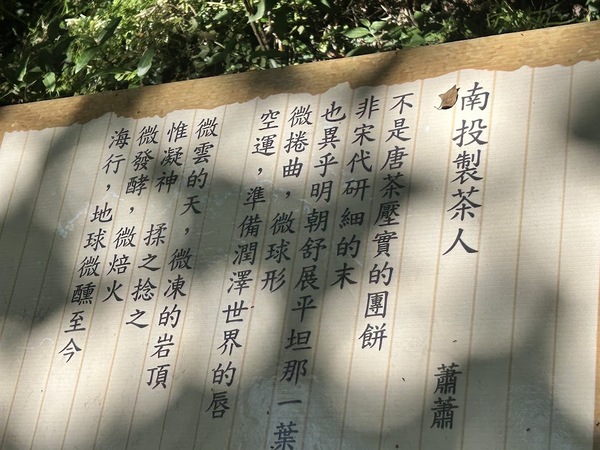 南投製茶人
蕭蕭
不是唐茶壓實的團餅
非宋代研細的末
也異乎明朝舒展平坦那一葉
微捲曲，微球形
空運，準備潤澤世界的唇
微雲的天，微凍的岩頂
惟凝神　揉之捻之
微發酵，微焙火
海行，地球微醺至今